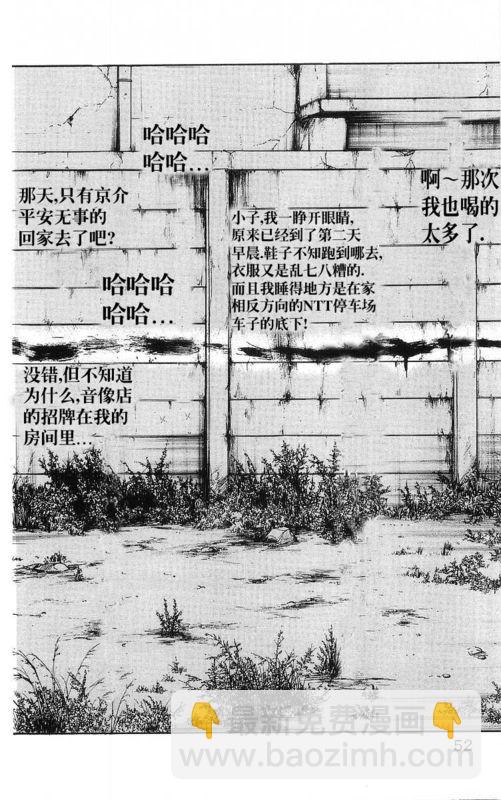 啊～那次
我也喝的
太多了.
小子,我一睁开眼睛,
原来已经到了第二天
早晨.鞋子不知跑到哪去,
衣服又是乱七八糟的.
而且我睡得地方是在家
相反方向的NTT停车场
车子的底下!
哈哈哈
哈哈…
那天,只有京介
平安无事的
回家去了吧?
哈哈哈
哈哈…
没错,但不知道
为什么,音像店
的招牌在我的
房间里…
最新免费漫画
www.baozimh.com
52